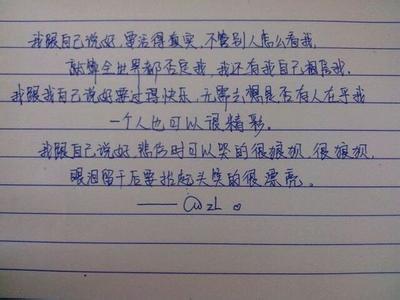 我跟自己说好,要活得真实,不管别人怎么看我,
就算全世界都否定我,我还有我自己相信我。
我跟我自己说好要过得快乐,无需去想是否有人在乎我
一个人也可以很精彩。
我跟自己说好,悲伤时可以哭的很狼狈,很狼狈,
眼泪留干后要抬起头笑的很漂亮。
—— @ZL。